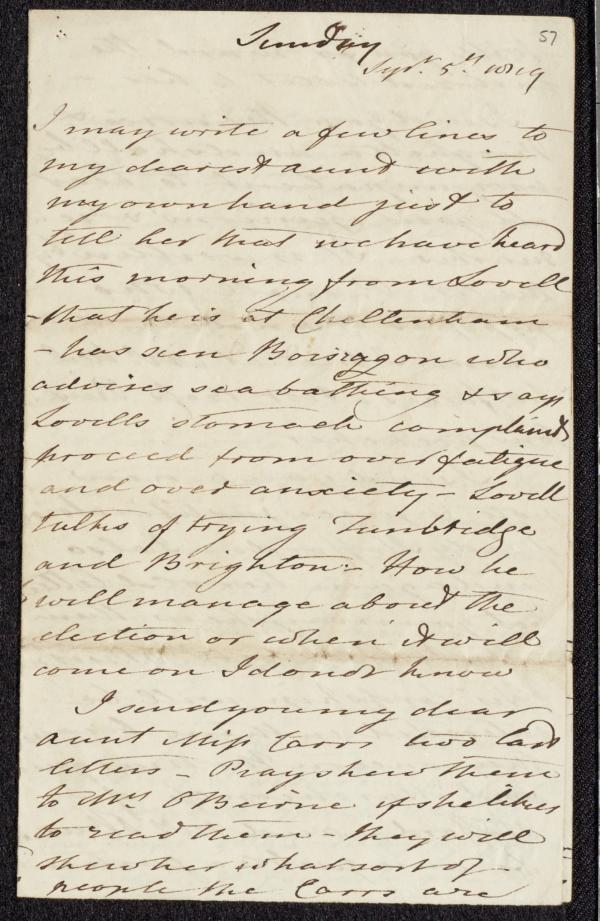 Sunday
57
Sepr. 5th 1819
I may write a few lines to
my dearest aunt with
my own hand just to
tell her that we have heard
this morning from Lovell
- that he is at Cheltenham
- has seen Boisragon who
advises sea bathing & says
Lovells stomach complaints
proceed from over fatigue
and over anxiety - Lovell
talks of trying Tunbridge
and Brighton - How he
will manage about the
election or when it will
come on I do not know
I send you my dear
aunt Miss Carrs two last
letters - Pray shew them
to Mrs OBeirne if she likes
to read them - they will
shew her what sort of
people the Carrs are